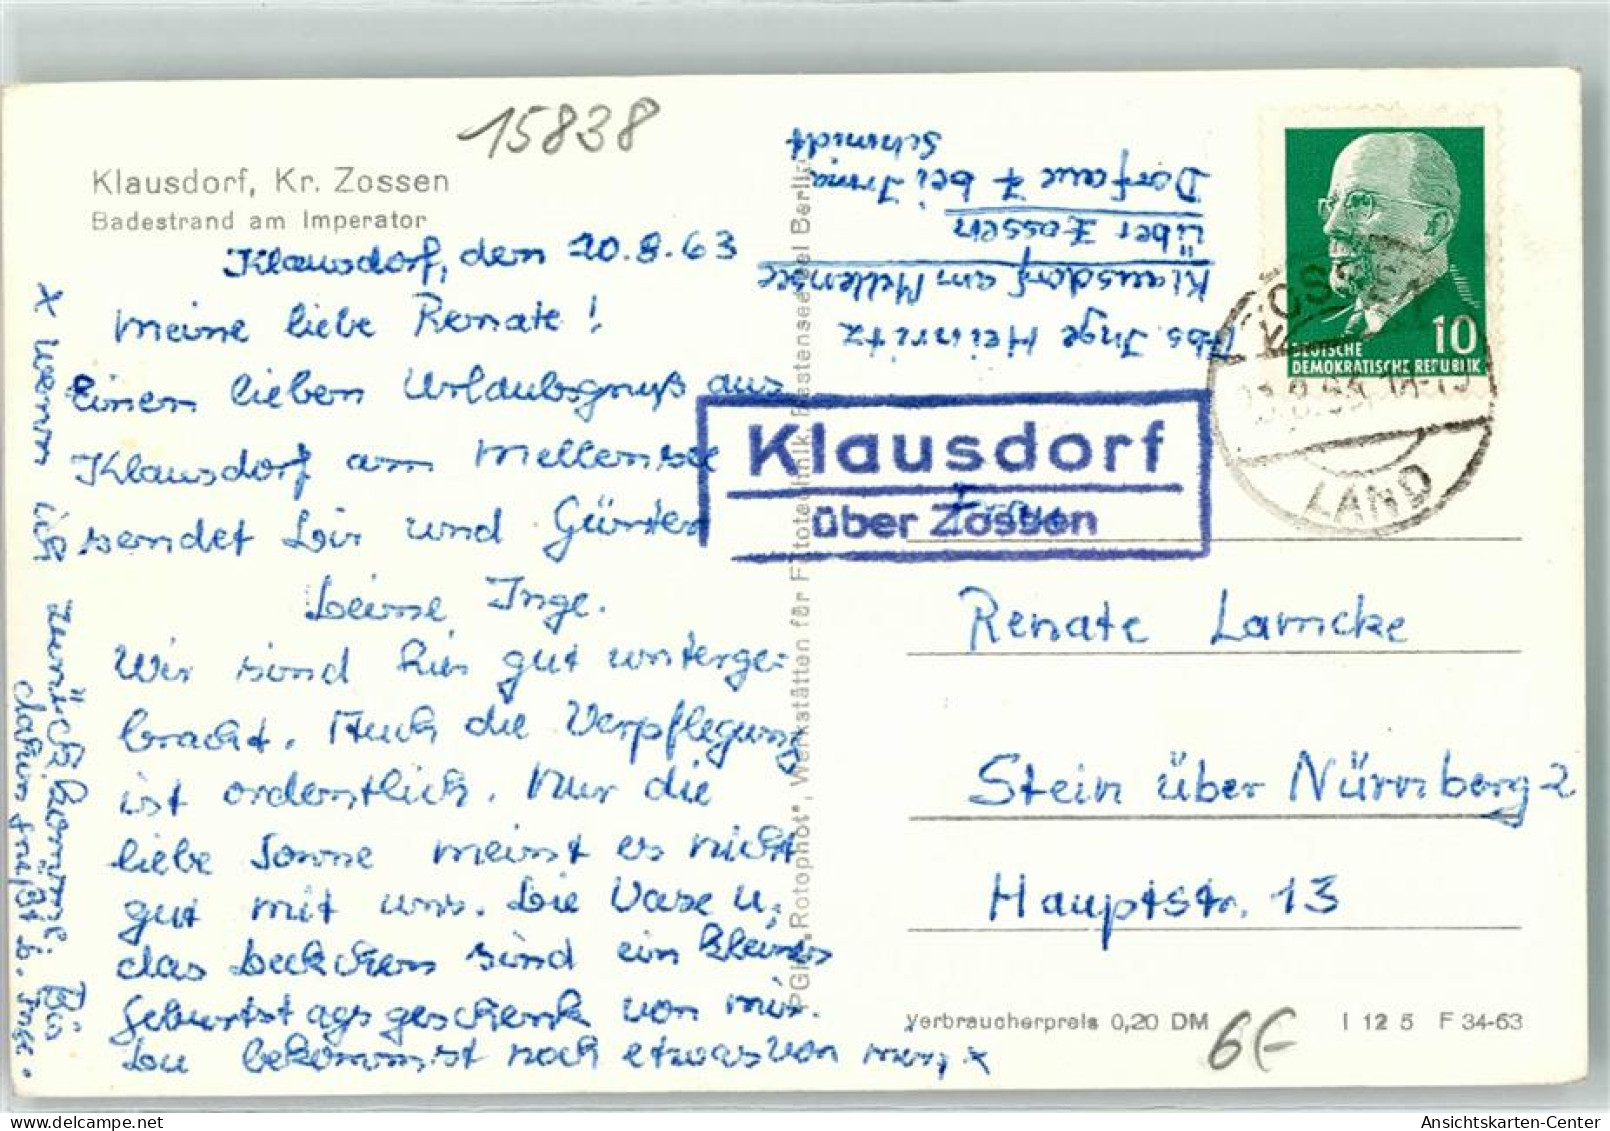 15838
Klausdorf, Kr. Zossen
Badestrand am Imperator
Klausdorf, den 20.8.63
Meine liebe Renate!
Einen lieben Urlaubsgruß aus
Klausdorf am Mellensee
sendet Dir und Günter
Deine Inge.
Wir sind hier gut unterge-
bracht. Auch die Verpflegung
ist ordentlich. Nur die
liebe Sonne meint es nicht
gut mit uns. Die Vase u.
das Deckchen sind ein kleines
Geburtstagsgeschenk von mir.
Du bekommst noch etwas von mir, x
x wenn ich zurückkomme. Bis
dahin grüßt D. Inge.
PGH „Rotophot", Werkstätten für Fototechnik, Bestensee
Berlin
Abs. Inge Heinritz
Klausdorf am Mellensee
über Zossen
Dorfaue 7 bei Irma
Schmidt
DEUTSCHE
DEMOKRATISCHE REPUBLIK
10
ZOSSEN
LAND
Klausdorf
über Zossen
Renate Lamcke
Stein über Nürnberg 2
Hauptstr. 13
Verbraucherpreis 0,20 DM
I 12 5 F 34-63
6€
Ansichtskarten-Center